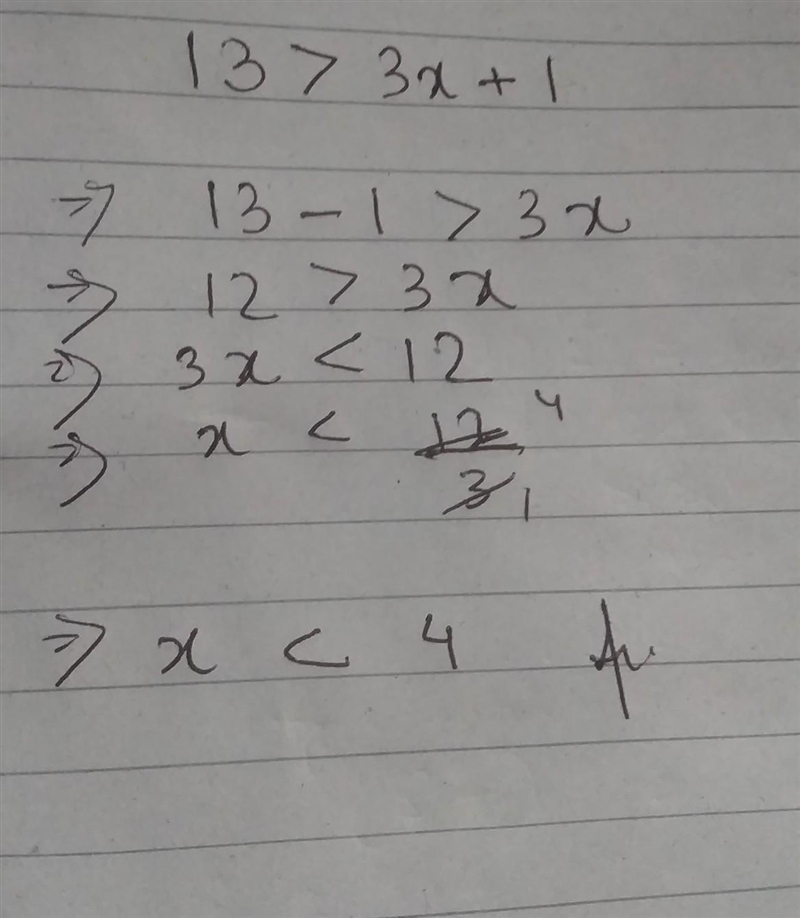 13 > 3x + 1
⇒ 13 - 1 > 3x
⇒ 12 > 3x
⇒ 3x < 12
⇒ x < 12/3 4 1
⇒ x < 4